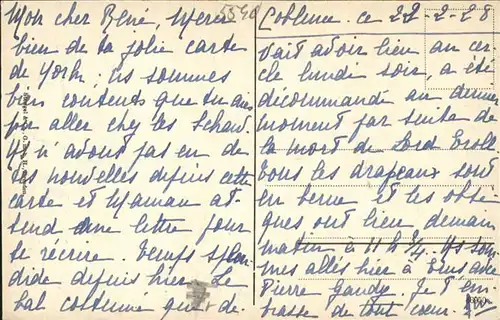 Mon cher René, Merci
bien de ta jolie carte
de York. Ns sommes
bien contents que tu aies
pu aller chez les Schaw.
Ns n'avons pas eu de
tes nouvelles depuis cette
carte et Maman at-
tend une lettre pour
te récrire. Temps splen-
dide depuis hier. Le
bal costumé qui de-
Coblence, ce 22-2-28
vait avoir lieu au cer-
cle lundi soir, a été
décommandé au dernier
moment par suite de
la mort de Lord Eroll.
Tous les drapeaux sont
en berne et les obsè-
ques ont lieu demain
matin à 11 h 1/4. Ns som-
mes allés hier à Ems avec
Pierre Gandy. Je t'em-
brasse de tout cœur.